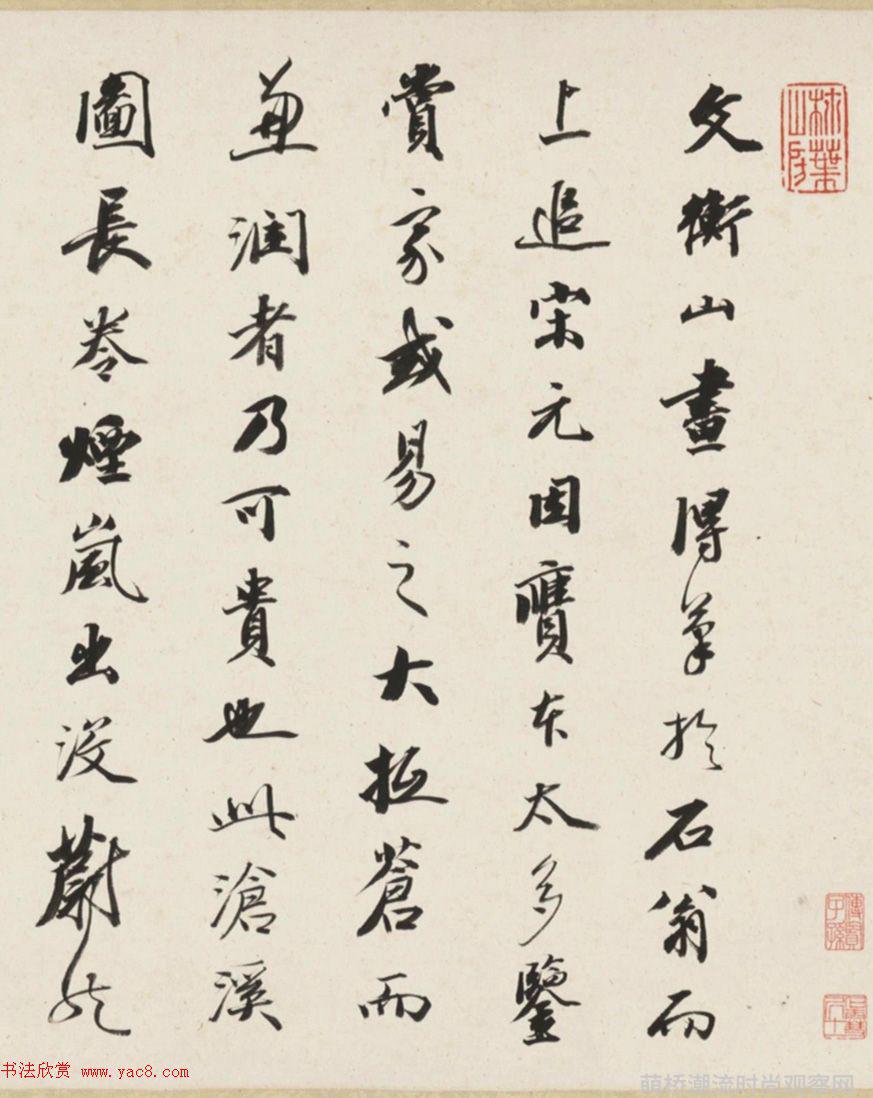 文衡山畫得筆於石翁而
上追宋元因贗本太多鑒
賞家或易之大抵蒼而
兼潤者乃可貴也此滄溪
圖長卷煙嵐出沒蔚然
书法欣赏 www.yac8.com
萌桥潮流时尚观察网